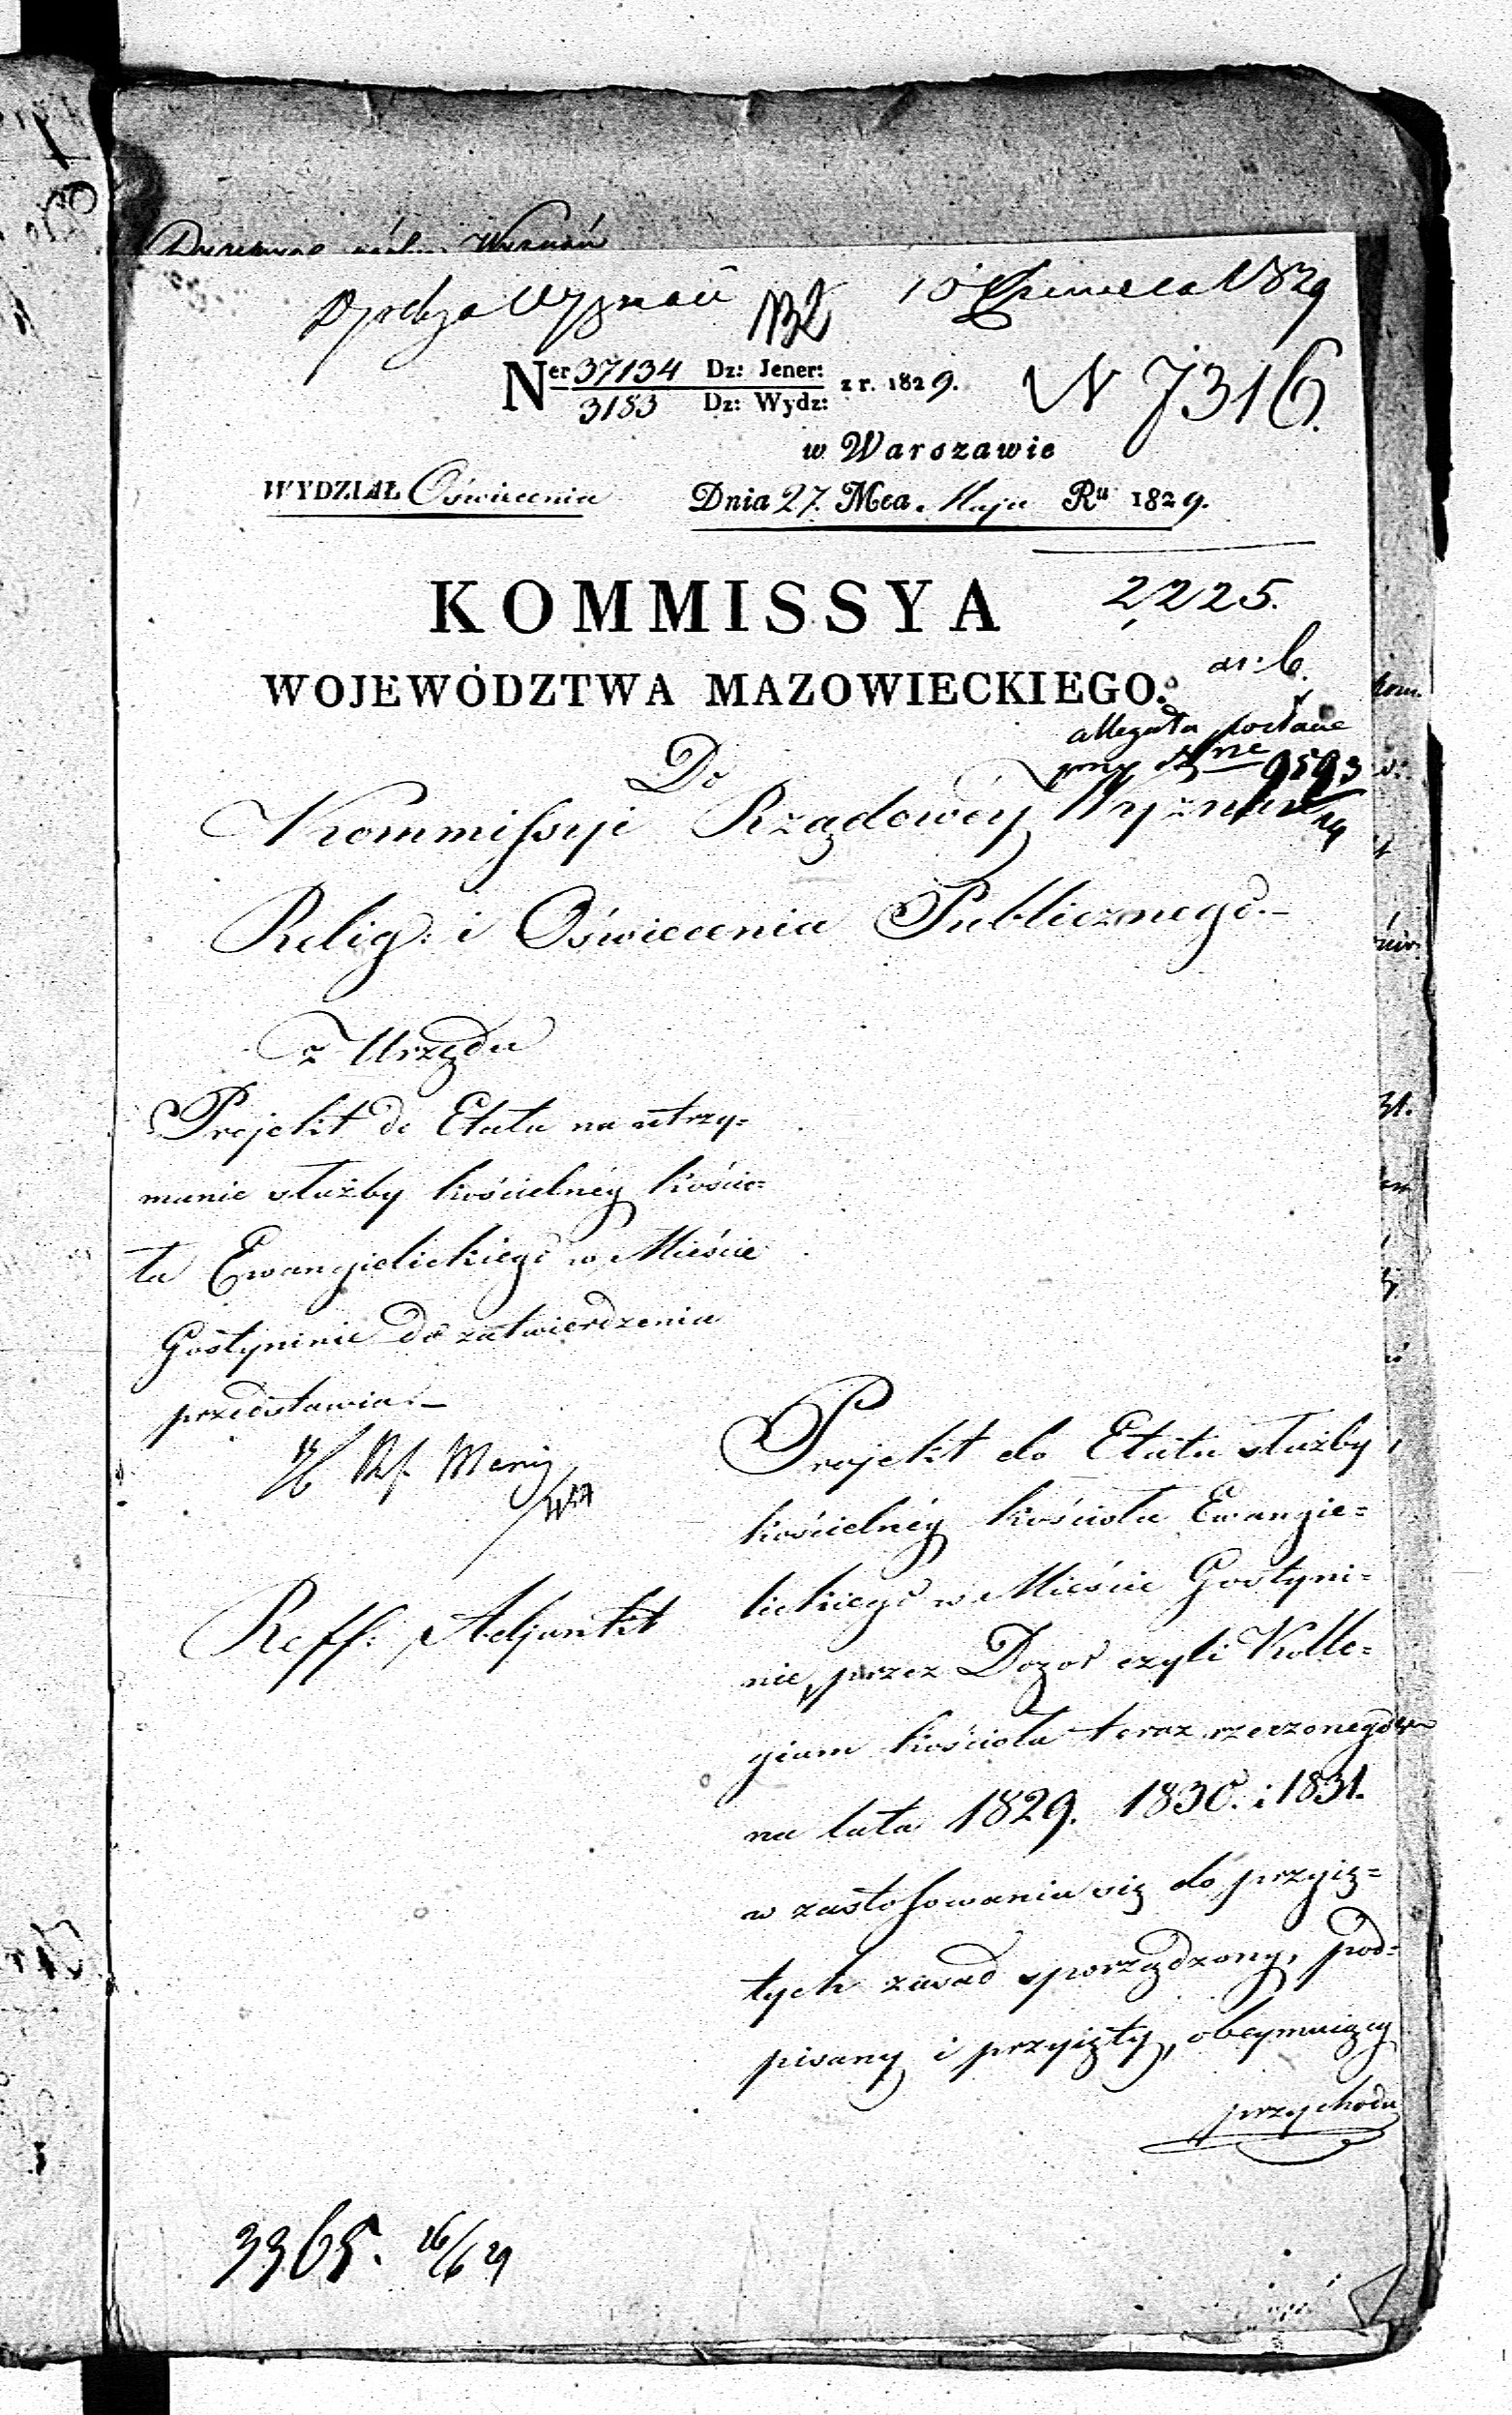 10 Czerwca 1829
N 7316.
Ner 37134 Dz: Jener: z r. 1829.
3153 Dz: Wydz:
w Warszawie
WYDZIAŁ Oświecenia
Dnia 27. Mca Maja Ru 1829.
KOMMISSYA
2,225.
WOJEWÓDZTWA MAZOWIECKIEGO.
allegata
przy Nrze 9593
Do
Kommissyi Rządowéy Wyznań
Relig: i Oświecenia Publicznego.-
z Urzędu
Projekt do Etatu na utrzy=
manie służby kościelnéy kościo=
ła Ewangielickiego w Mieście
Gostyninie do zatwierdzenia
przedstawia.-
Reff: Adjunkt
Projekt do Etatu służby
kościelnéy kościoła Ewangie=
lickiego w Mieście Gostyni=
nie, przez Dozor czyli Kolle=
gium kościoła teraz rzeczonego
na lata 1829. 1830. i 1831.
w zastosowaniu się do przyię=
tych zasad sporządzony, pod=
pisany i przyięty, obeymuiący
przychodu
3365. 16/6 29